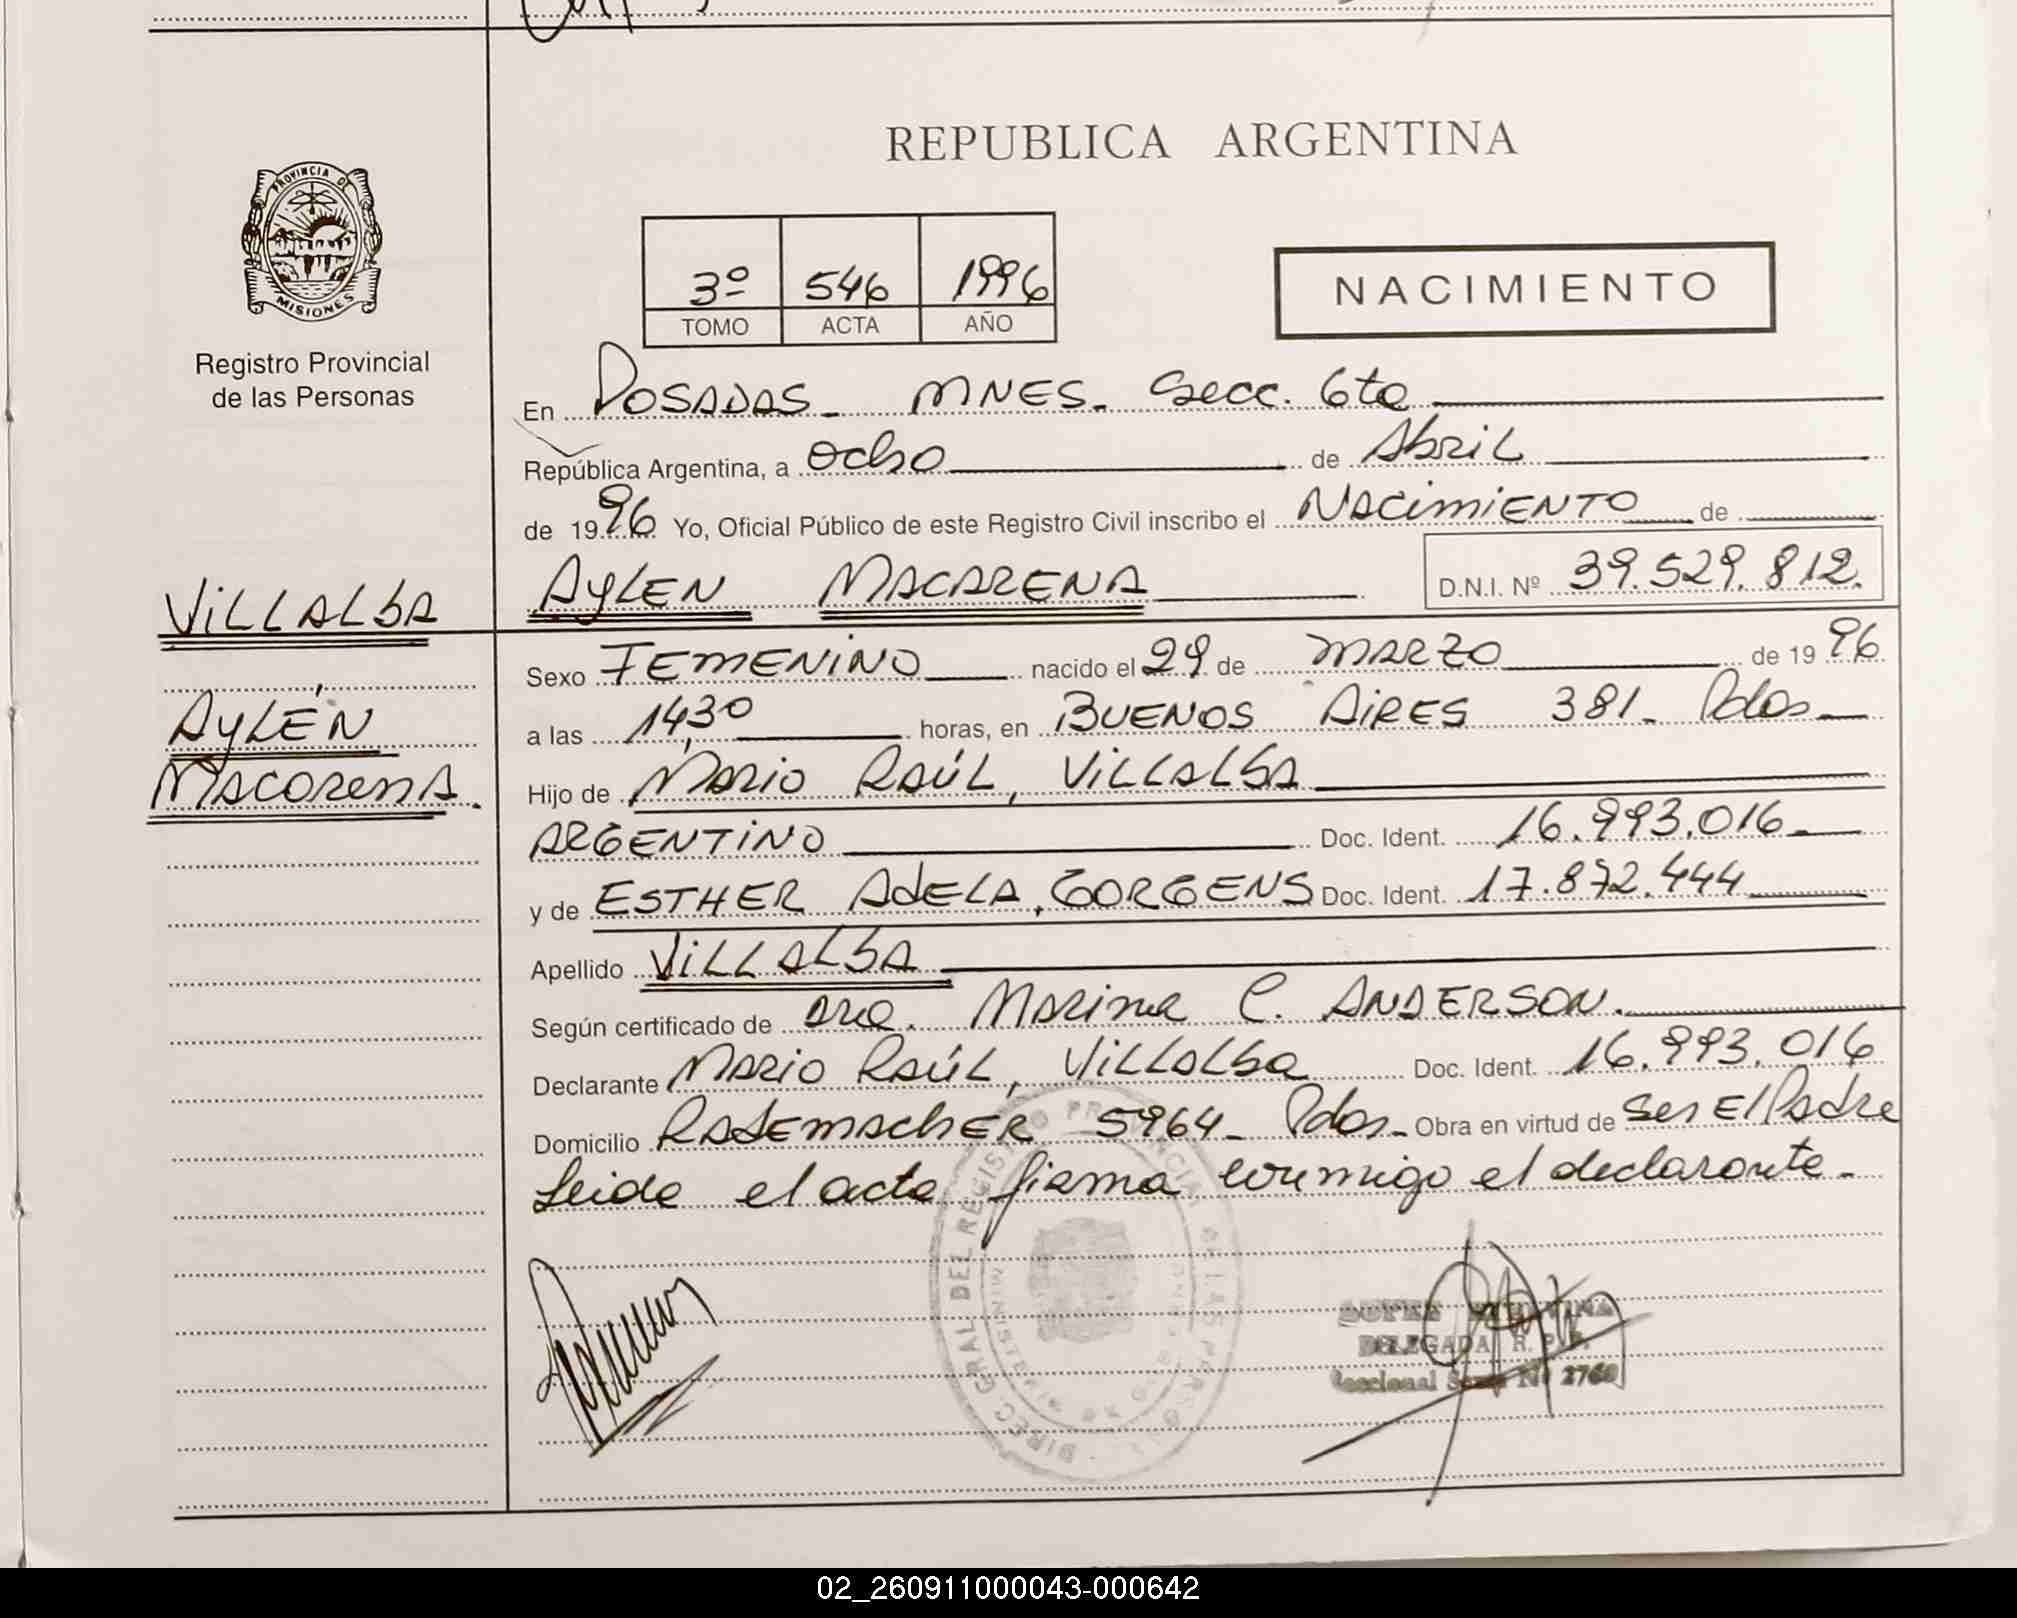 REPUBLICA ARGENTINA
PROVINCIA DE
MISIONES
Registro Provincial
de las Personas
3º 546 1996
TOMO ACTA AÑO
NACIMIENTO
En POSADAS - MNES. Secc. 6ta
República Argentina, a ocho de Abril
de 1996 Yo, Oficial Público de este Registro Civil inscribo el NACIMIENTO de
VILLALBA
AYLEN MACARENA D.N.I. Nº 39.529.812.
AYLÉN
MACARENA.
Sexo FEMENINO nacido el 29 de MARZO de 1996
a las 14,30 horas, en BUENOS AIRES 381 - Pdas
Hijo de Mario RAÚL, VILLALBA
ARGENTINO Doc. Ident. 16.993.016
y de ESTHER ADELA, GORGENS Doc. Ident. 17.872.444
Apellido VILLALBA
Según certificado de Dra. Marina C. ANDERSON.
Declarante MARIO RAÚL, VILLALBA Doc. Ident. 16.993.016
Domicilio RADEMACHER 5964 - Pdas - Obra en virtud de ser El Padre
Leida el acta firma conmigo el declarante -
DIREC. GRAL DEL REGISTRO PROVINCIAL DE LAS PERSONAS
DELEGADA R. P. P.
Seccional Sexta Nº 2760
02_260911000043-000642